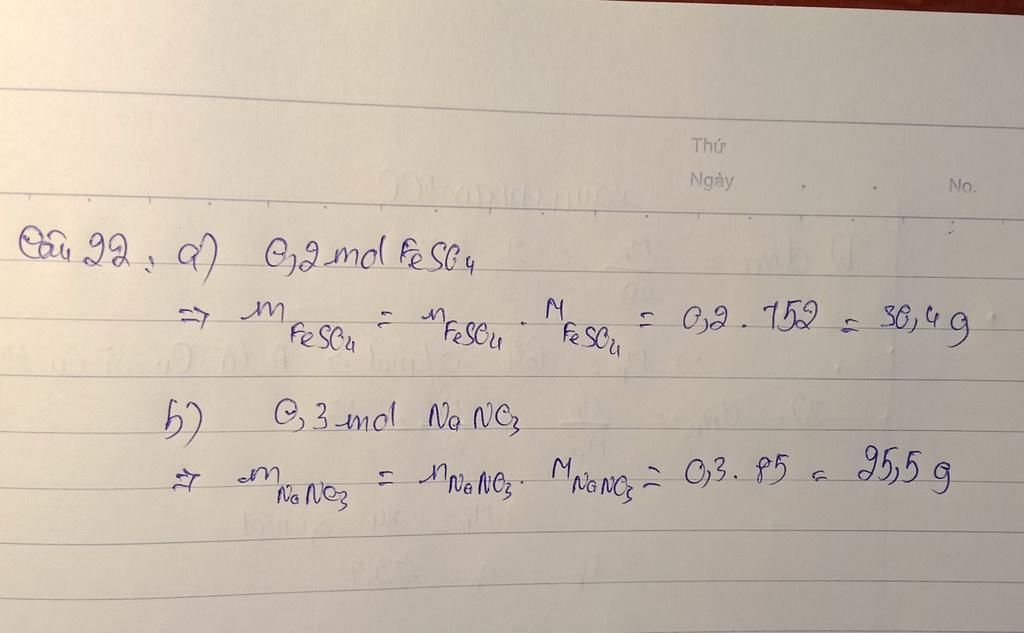 Thứ
Ngày . . No.
Câu 22, a) 0,2 mol FeSO4
=> m FeSO4 = n FeSO4 . M FeSO4 = 0,2 . 152 = 30,4 g
b) 0,3 mol NaNO3
=> m NaNO3 = n NaNO3 . M NaNO3 = 0,3 . 85 = 25,5 g